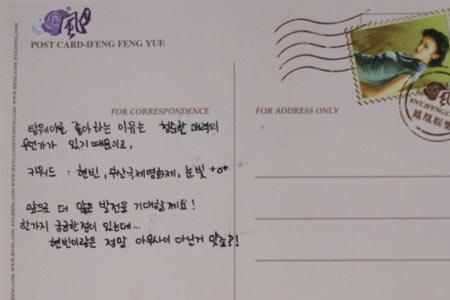 POST CARD-IFENG FENG YUE
FOR CORRESPONDENCE
FOR ADDRESS ONLY
탕웨이를 좋아하는 이유는 청순한 매력의
무언가가 있기 때문이고,
키워드 : 현빈, 부산국제영화제, 눈빛 +o+
앞으로 더 많은 발전을 기대할께요!
한가지 궁금한점이 있는데...
현빈이랑은 정말 아무사이 아닌거 맞죠?!
ENT.IFENG.COM